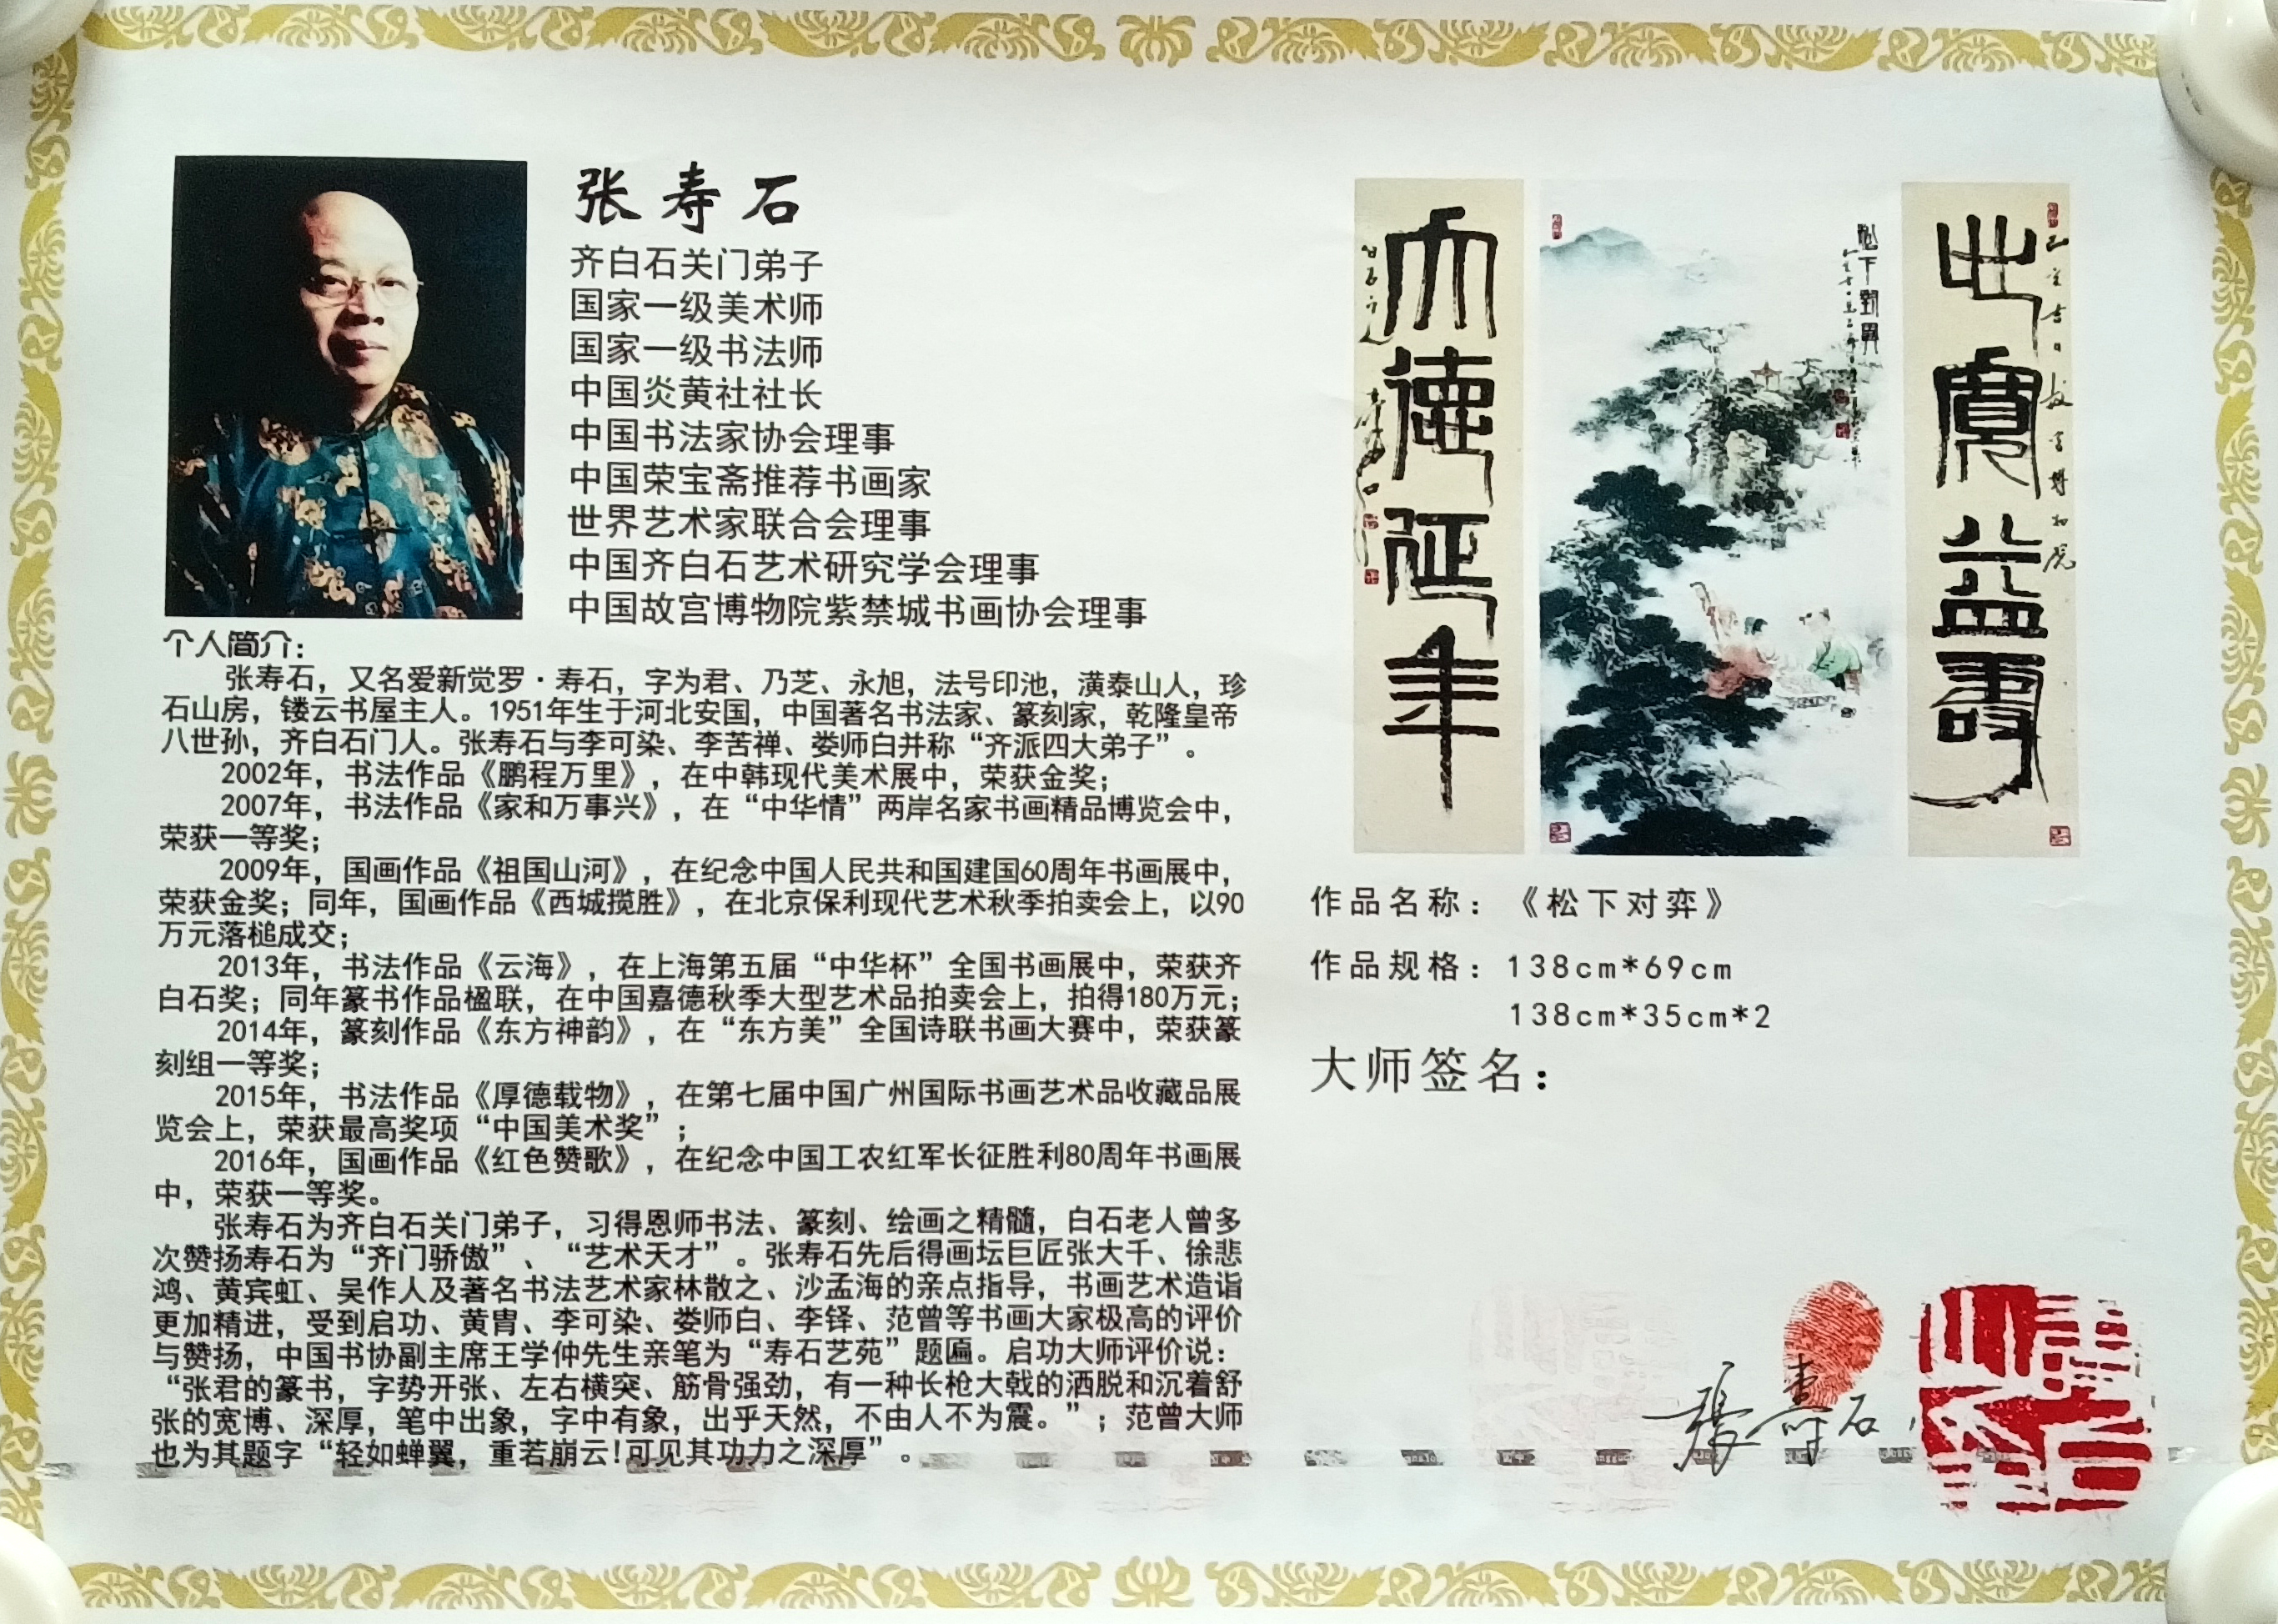 张寿石
齐白石关门弟子
国家一级美术师
国家一级书法师
中国炎黄社社长
中国书法家协会理事
中国荣宝斋推荐书画家
世界艺术家联合会理事
中国齐白石艺术研究学会理事
中国故宫博物院紫禁城书画协会理事
个人简介：
张寿石，又名爱新觉罗·寿石，字为君、乃芝、永旭，法号印池，潢泰山人，珍
石山房，镂云书屋主人。1951年生于河北安国，中国著名书法家、篆刻家，乾隆皇帝
八世孙，齐白石门人。张寿石与李可染、李苦禅、娄师白并称“齐派四大弟子”。
2002年，书法作品《鹏程万里》，在中韩现代美术展中，荣获金奖；
2007年，书法作品《家和万事兴》，在“中华情”两岸名家书画精品博览会中，
荣获一等奖；
2009年，国画作品《祖国山河》，在纪念中国人民共和国建国60周年书画展中，
荣获金奖；同年，国画作品《西城揽胜》，在北京保利现代艺术秋季拍卖会上，以90
万元落槌成交；
2013年，书法作品《云海》，在上海第五届“中华杯”全国书画展中，荣获齐
白石奖；同年篆书作品楹联，在中国嘉德秋季大型艺术品拍卖会上，拍得180万元；
2014年，篆刻作品《东方神韵》，在“东方美”全国诗联书画大赛中，荣获篆
刻组一等奖；
2015年，书法作品《厚德载物》，在第七届中国广州国际书画艺术品收藏品展
览会上，荣获最高奖项“中国美术奖”；
2016年，国画作品《红色赞歌》，在纪念中国工农红军长征胜利80周年书画展
中，荣获一等奖。
张寿石为齐白石关门弟子，习得恩师书法、篆刻、绘画之精髓，白石老人曾多
次赞扬寿石为“齐门骄傲”、“艺术天才”。张寿石先后得画坛巨匠张大千、徐悲
鸿、黄宾虹、吴作人及著名书法艺术家林散之、沙孟海的亲点指导，书画艺术造诣
更加精进，受到启功、黄胄、李可染、娄师白、李铎、范曾等书画大家极高的评价
与赞扬，中国书协副主席王学仲先生亲笔为“寿石艺苑”题匾。启功大师评价说：
“张君的篆书，字势开张、左右横突、筋骨强劲，有一种长枪大戟的洒脱和沉着舒
张的宽博、深厚，笔中出象，字中有象，出乎天然，不由人不为震。”；范曾大师
也为其题字“轻如蝉翼，重若崩云!可见其功力之深厚”。
益壽
大德延年
松下對弈
作品名称：《松下对弈》
作品规格：138cm*69cm
138cm*35cm*2
大师签名：
張壽石